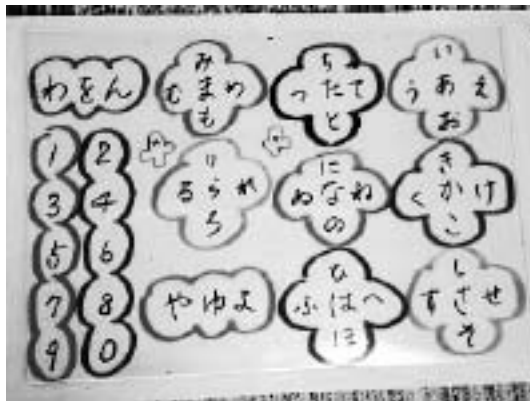 わをん
み
むまめ
も
ち
つたて
と
い
うあえ
お
1 2
3 4
5 6
7 8
9 0
り
るられ
ろ
に
ぬなね
の
き
くかけ
こ
やゆよ
ひ
ふはへ
ほ
し
すさせ
そ